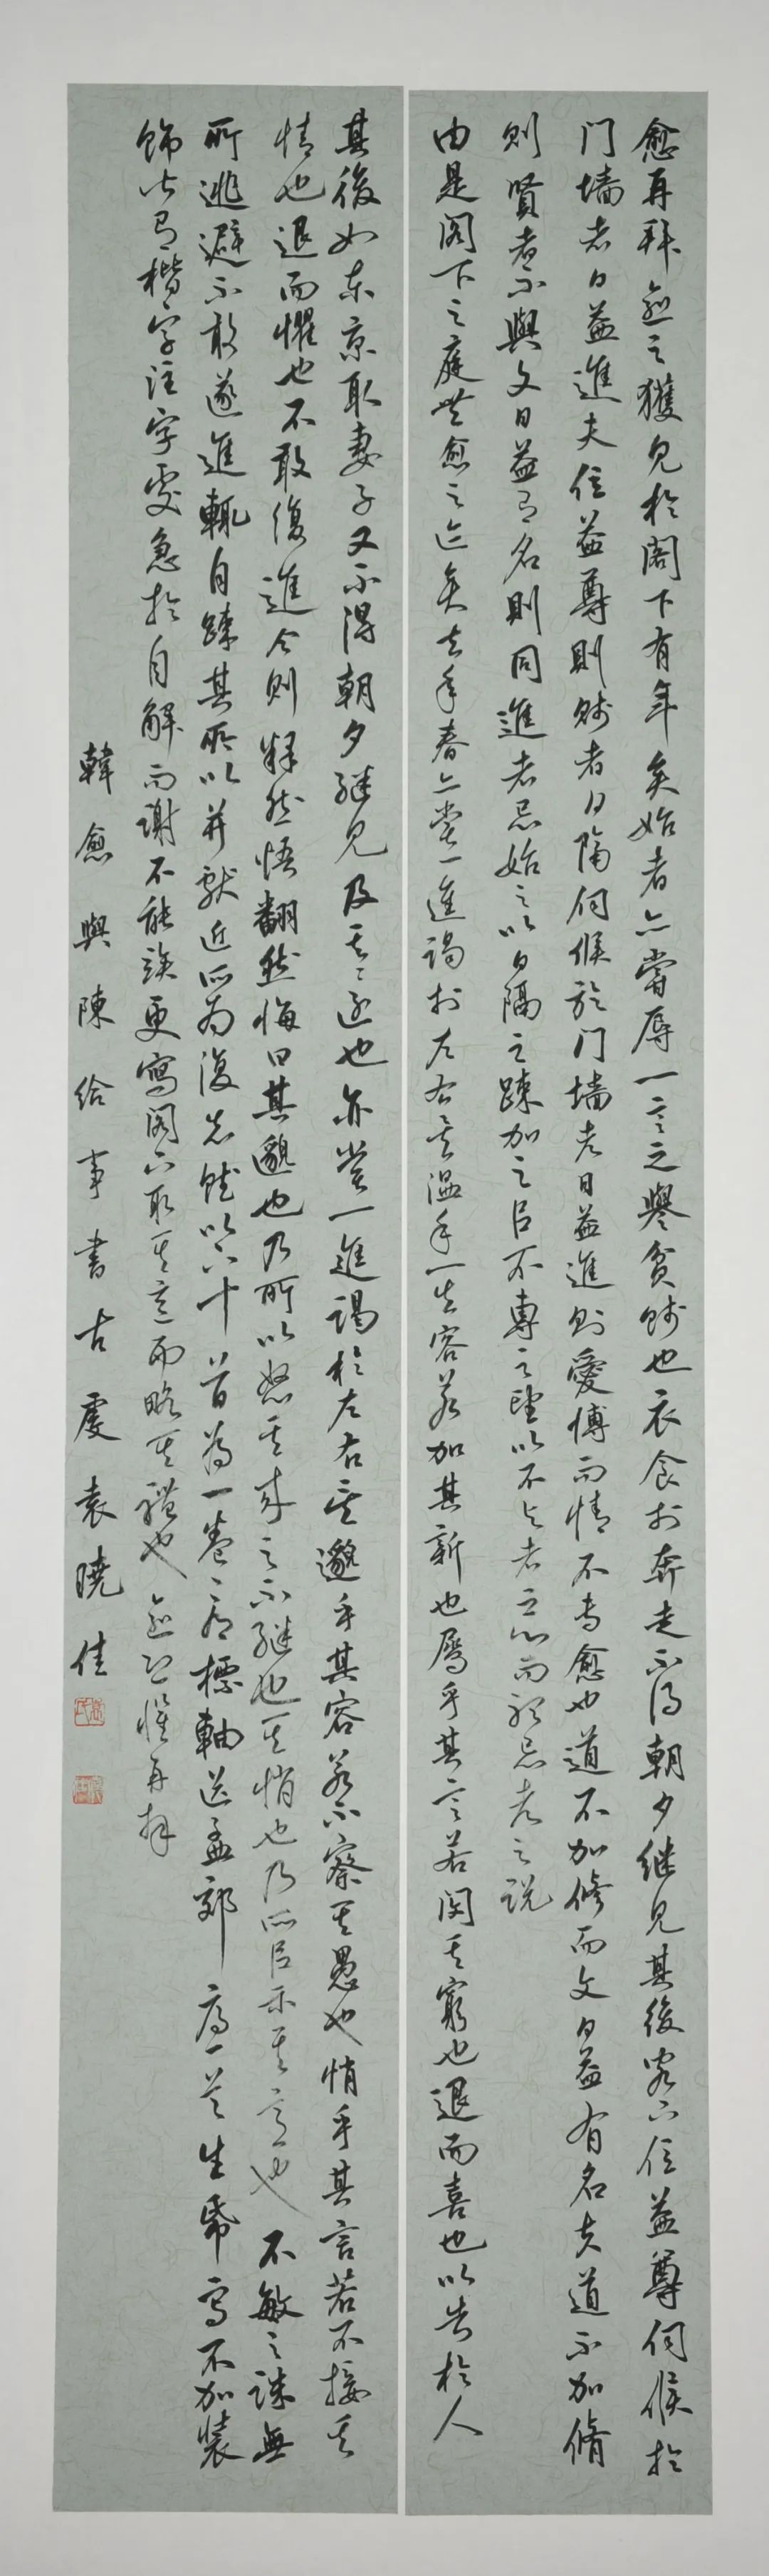 愈再拜愈之獲見於閣下有年矣始者亦嘗辱一言之譽貧賤也衣食於奔走不得朝夕继見其後閣下位益尊伺候於
门墙者日益進夫位益尊則賤者日隔伺候於门墙者日益進則愛博而情不専愈也道不加修而文日益有名夫道不加脩
则賢者不與文日益有名則同進者忌始之以日隔之踈加之以不專之望以不与者之心而聽忌者之说
由是閣下之庭無愈之迹矣去年春亦嘗一進謁於左右矣温乎其容若加其新也屬乎其言若闵其窮也退而喜也以告於人
其後如东京取妻子又不得朝夕继見及其還也亦嘗一進謁於左右矣邈乎其容若不察其愚也悄乎其言若不接其
情也退而懼也不敢復進今则釋然悟翻然悔曰其邈也乃所以怒其来之不継也其悄也乃所以示其意也不敏之誅無
所逃避不敢遂進輒自踈其所以并献近所为復志賦以下十首為一卷卷有標軸送孟郊序一首生纸寫不加裝
飾皆有楷字注字處急於自解而謝不能俟更寫閣下取其意而略其禮也愈恐懼再拜
韓愈與陳给事書古虞袁曉佳